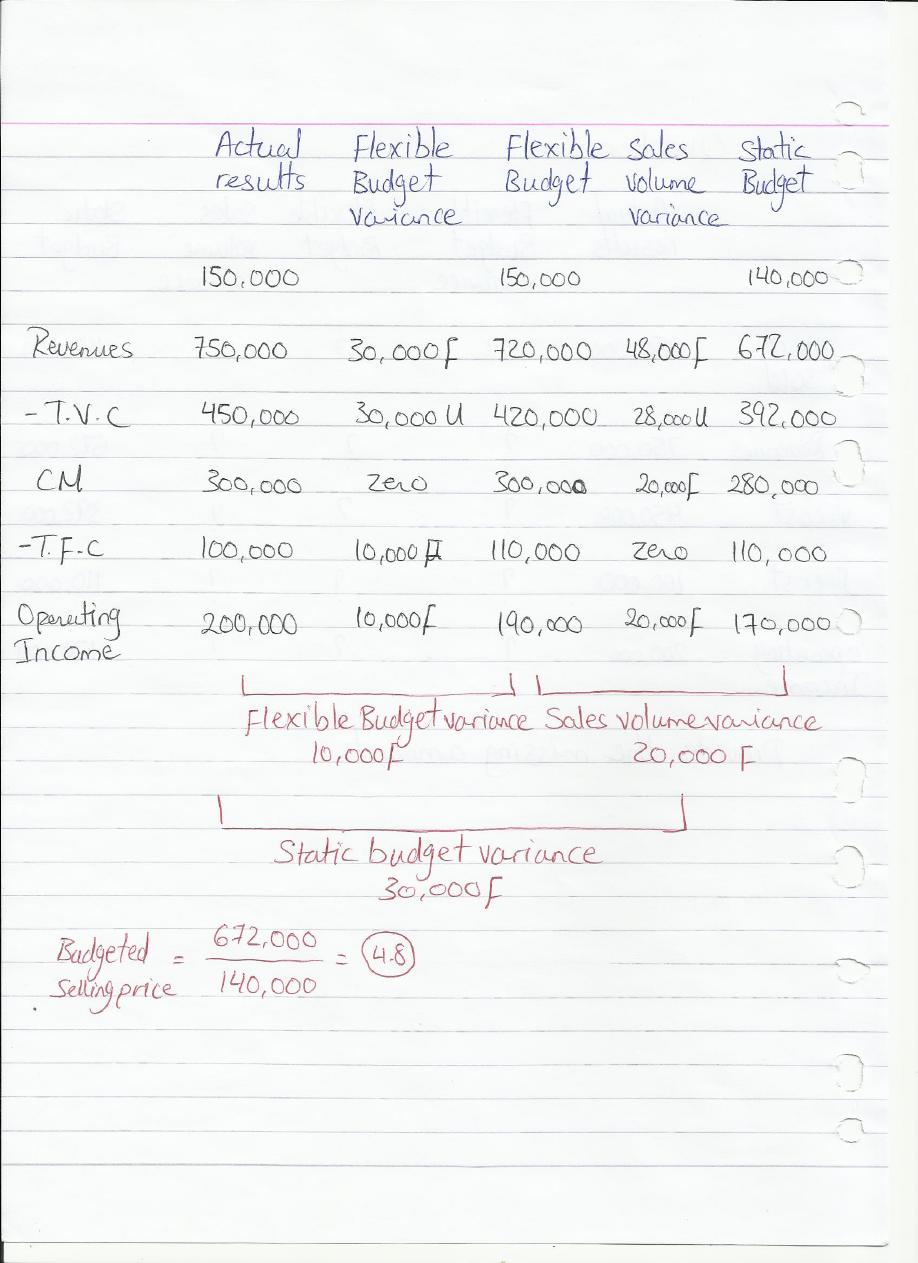 Actual Flexible Flexible Sales Static
results Budget Budget volume Budget
variance variance
150,000 150,000 140,000
Revenues 750,000 30,000F 720,000 48,000F 672,000
-T.V.C 450,000 30,000U 420,000 28,000U 392,000
CM 300,000 zero 300,000 20,000F 280,000
-T.F.C 100,000 10,000F 110,000 zero 110,000
Operating 200,000 10,000F 190,000 20,000F 170,000
Income
Flexible Budget variance Sales volume variance
10,000F 20,000 F
Static budget variance
30,000F
Budgeted = 672,000 = 4.8
Selling price 140,000